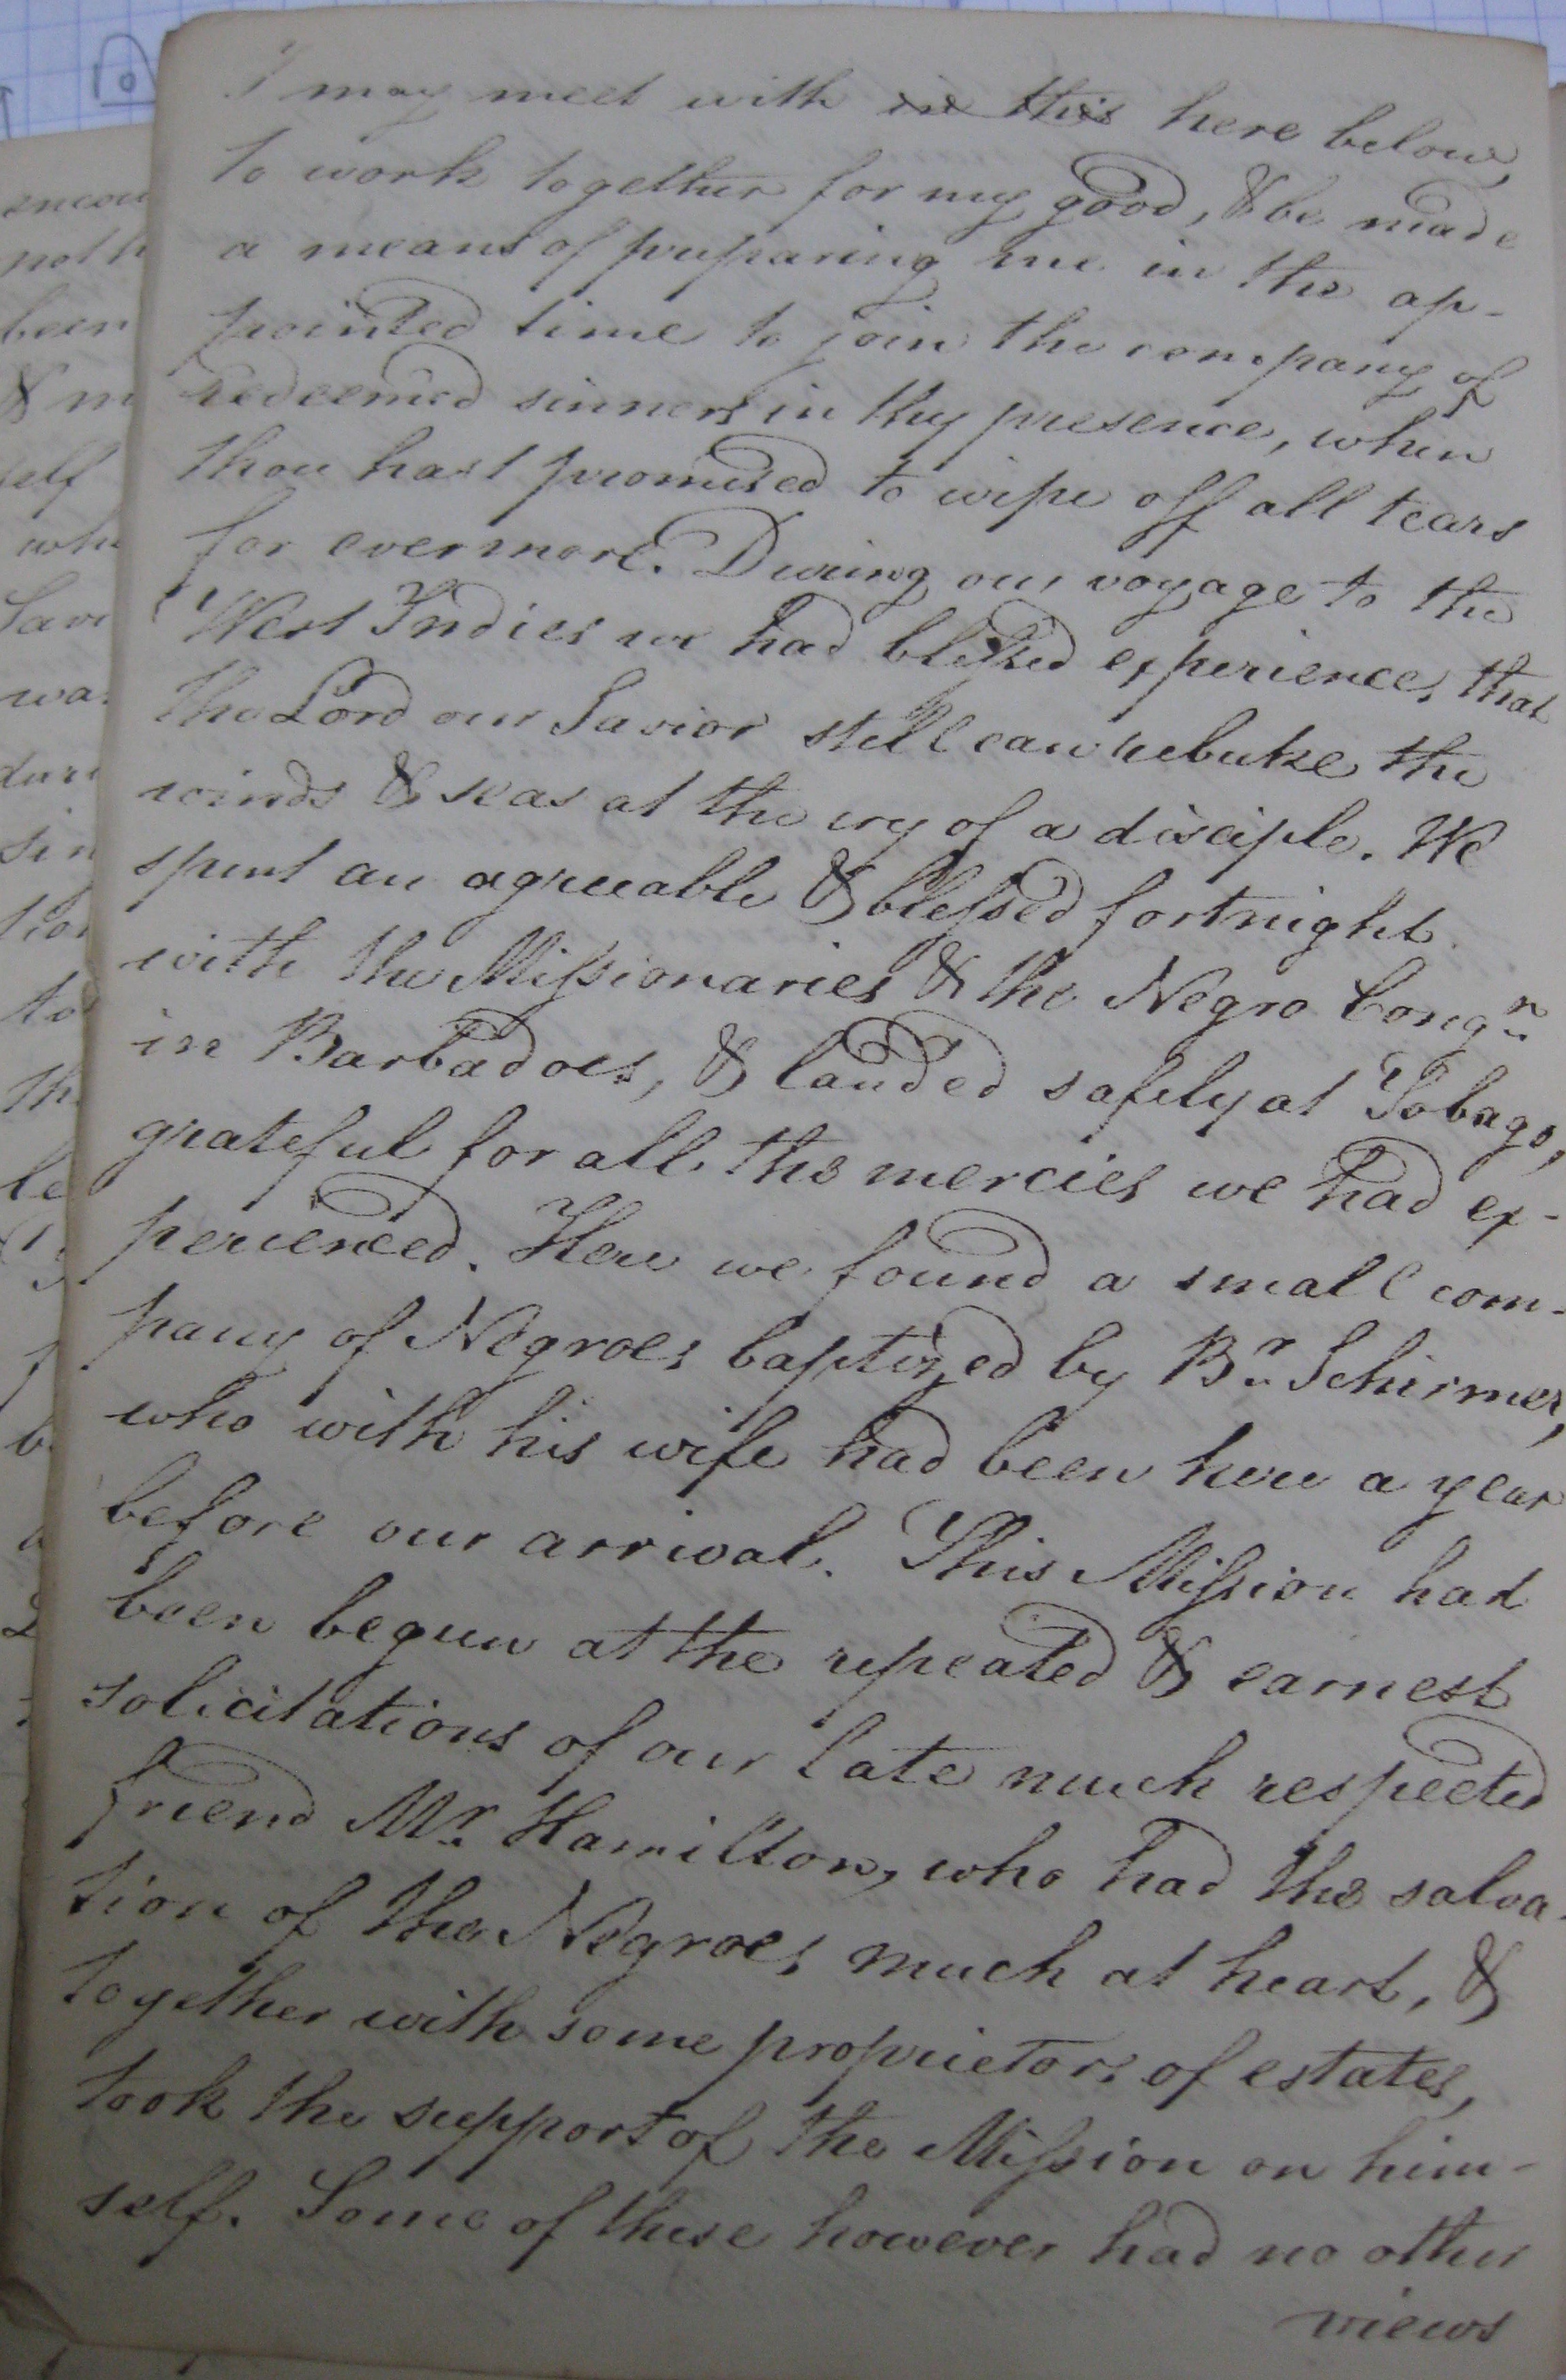 I may meet with in this here below,
to work together for my good, & be made
a means of preparing me in the ap-
pointed time to join the company of
redeemed sinners in thy presence, when
thou hast promised to wipe off all tears
for evermore. During our voyage to the
West Indies we had blessed experience, that
the Lord our Savior still can rebuke the
winds & seas at the cry of a disciple. We
spent an agreeable & blessed fortnight
with the Missionaries & the Negro Congn.
in Barbadoes, & landed safely at Tobago,
grateful for all the mercies we had ex-
perienced. Here we found a small com-
pany of Negroes baptized by Br. Schirmer,
who with his wife had been here a year
before our arrival. This Mission had
been begun at the repeated & earnest
solicitations of our late much respected
friend Mr. Hamilton, who had the salva-
tion of the Negroes much at heart, &
together with some proprietors of estates,
took the support of the Mission on him-
self. Some of these however had no other
views
encou
noth
been
& m
self
whi
Savi
wa
dur
sin
to
th
le